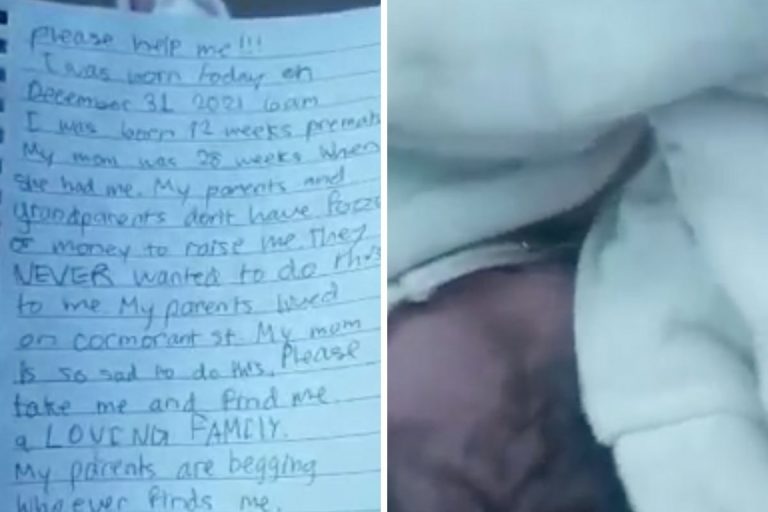 please help me!!!
I was born today on
December 31 2021 6am
I was born 12 weeks premat
My mom was 28 weeks when
she had me. My parents and
grandparents don't have
or money to raise me They
NEVER wanted to do this
to me My parents lived
on cormorant st. My mom
is so sad to do this. Please
take me and find me
a LOVING FAMILY.
My parents are begging
whoever finds me.